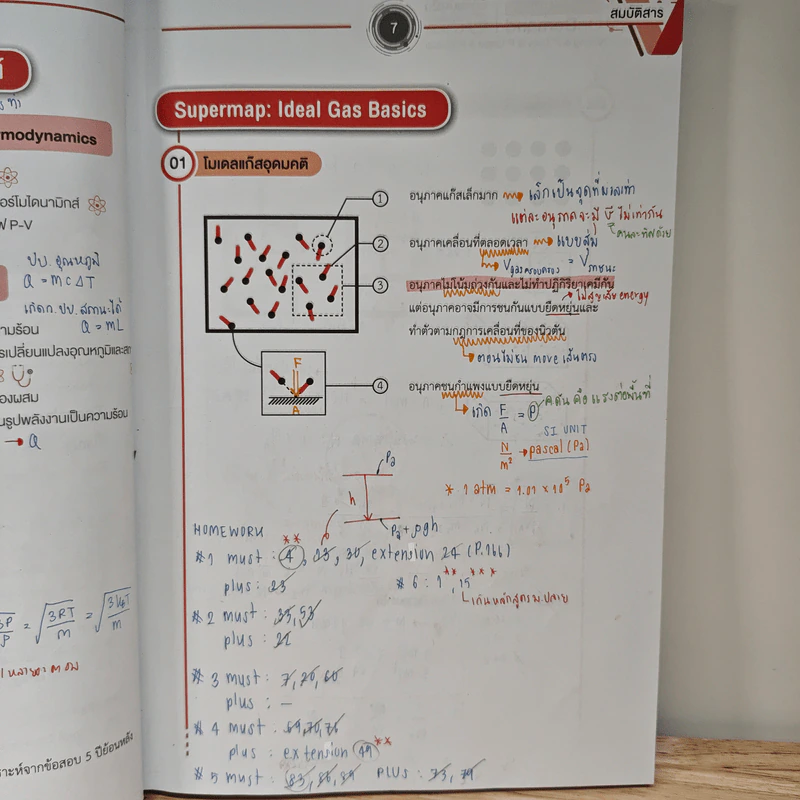 7
สมบัติสาร
Supermap: Ideal Gas Basics
01 โมเดลแก๊สอุดมคติ
1 อนุภาคแก๊สเล็กมาก เล็กเป็นจุดที่มวลเท่า
แต่ละอนุภาคจะมี v ไม่เท่ากัน
2 อนุภาคเคลื่อนที่ตลอดเวลา แบบสุ่ม
V = V ภาชนะ
3 อนุภาคไม่โน้มถ่วงกันและไม่ทำปฏิกิริยาเคมีกัน
ไม่สูญเสีย energy
แต่อนุภาคอาจมีการชนกันแบบยืดหยุ่นและ
ทำตัวตามกฎการเคลื่อนที่ของนิวตัน
ตอนไม่ชน move เส้นตรง
F
A
4 อนุภาคชนกำแพงแบบยืดหยุ่น
เกิด F/A = P ความดัน คือ แรงต่อพื้นที่
SI UNIT
N/m² → pascal (Pa)
* 1 atm = 1.01 × 10⁵ Pa
Pa
h
Pa + ρgh
HOMEWORK
**
#1 must : 4, 23, 30, extension 24 (P.166)
plus : 23
# 6 : 1**, 15***
เกินหลักสูตร ม.ปลาย
# 2 must : 35, 53
plus : 21
# 3 must : 7, 20, 60
plus : —
# 4 must : 69, 70, 76
plus : extension 49**
# 5 must : 83, 86, 89 PLUS : 73, 79
rmodynamics
อร์โมไดนามิกส์
P-V
ปป. อุณหภูมิ
Q = mcΔT
เกิดก. ปป. สถานะได้
Q = mL
วามร้อน
รเปลี่ยนแปลงอุณหภูมิและสถ
องผสม
นรูปพลังงานเป็นความร้อน
→ Q
3P/ρ = √3RT/m = √3kBT/m
ราะห์จากข้อสอบ 5 ปีย้อนหลัง